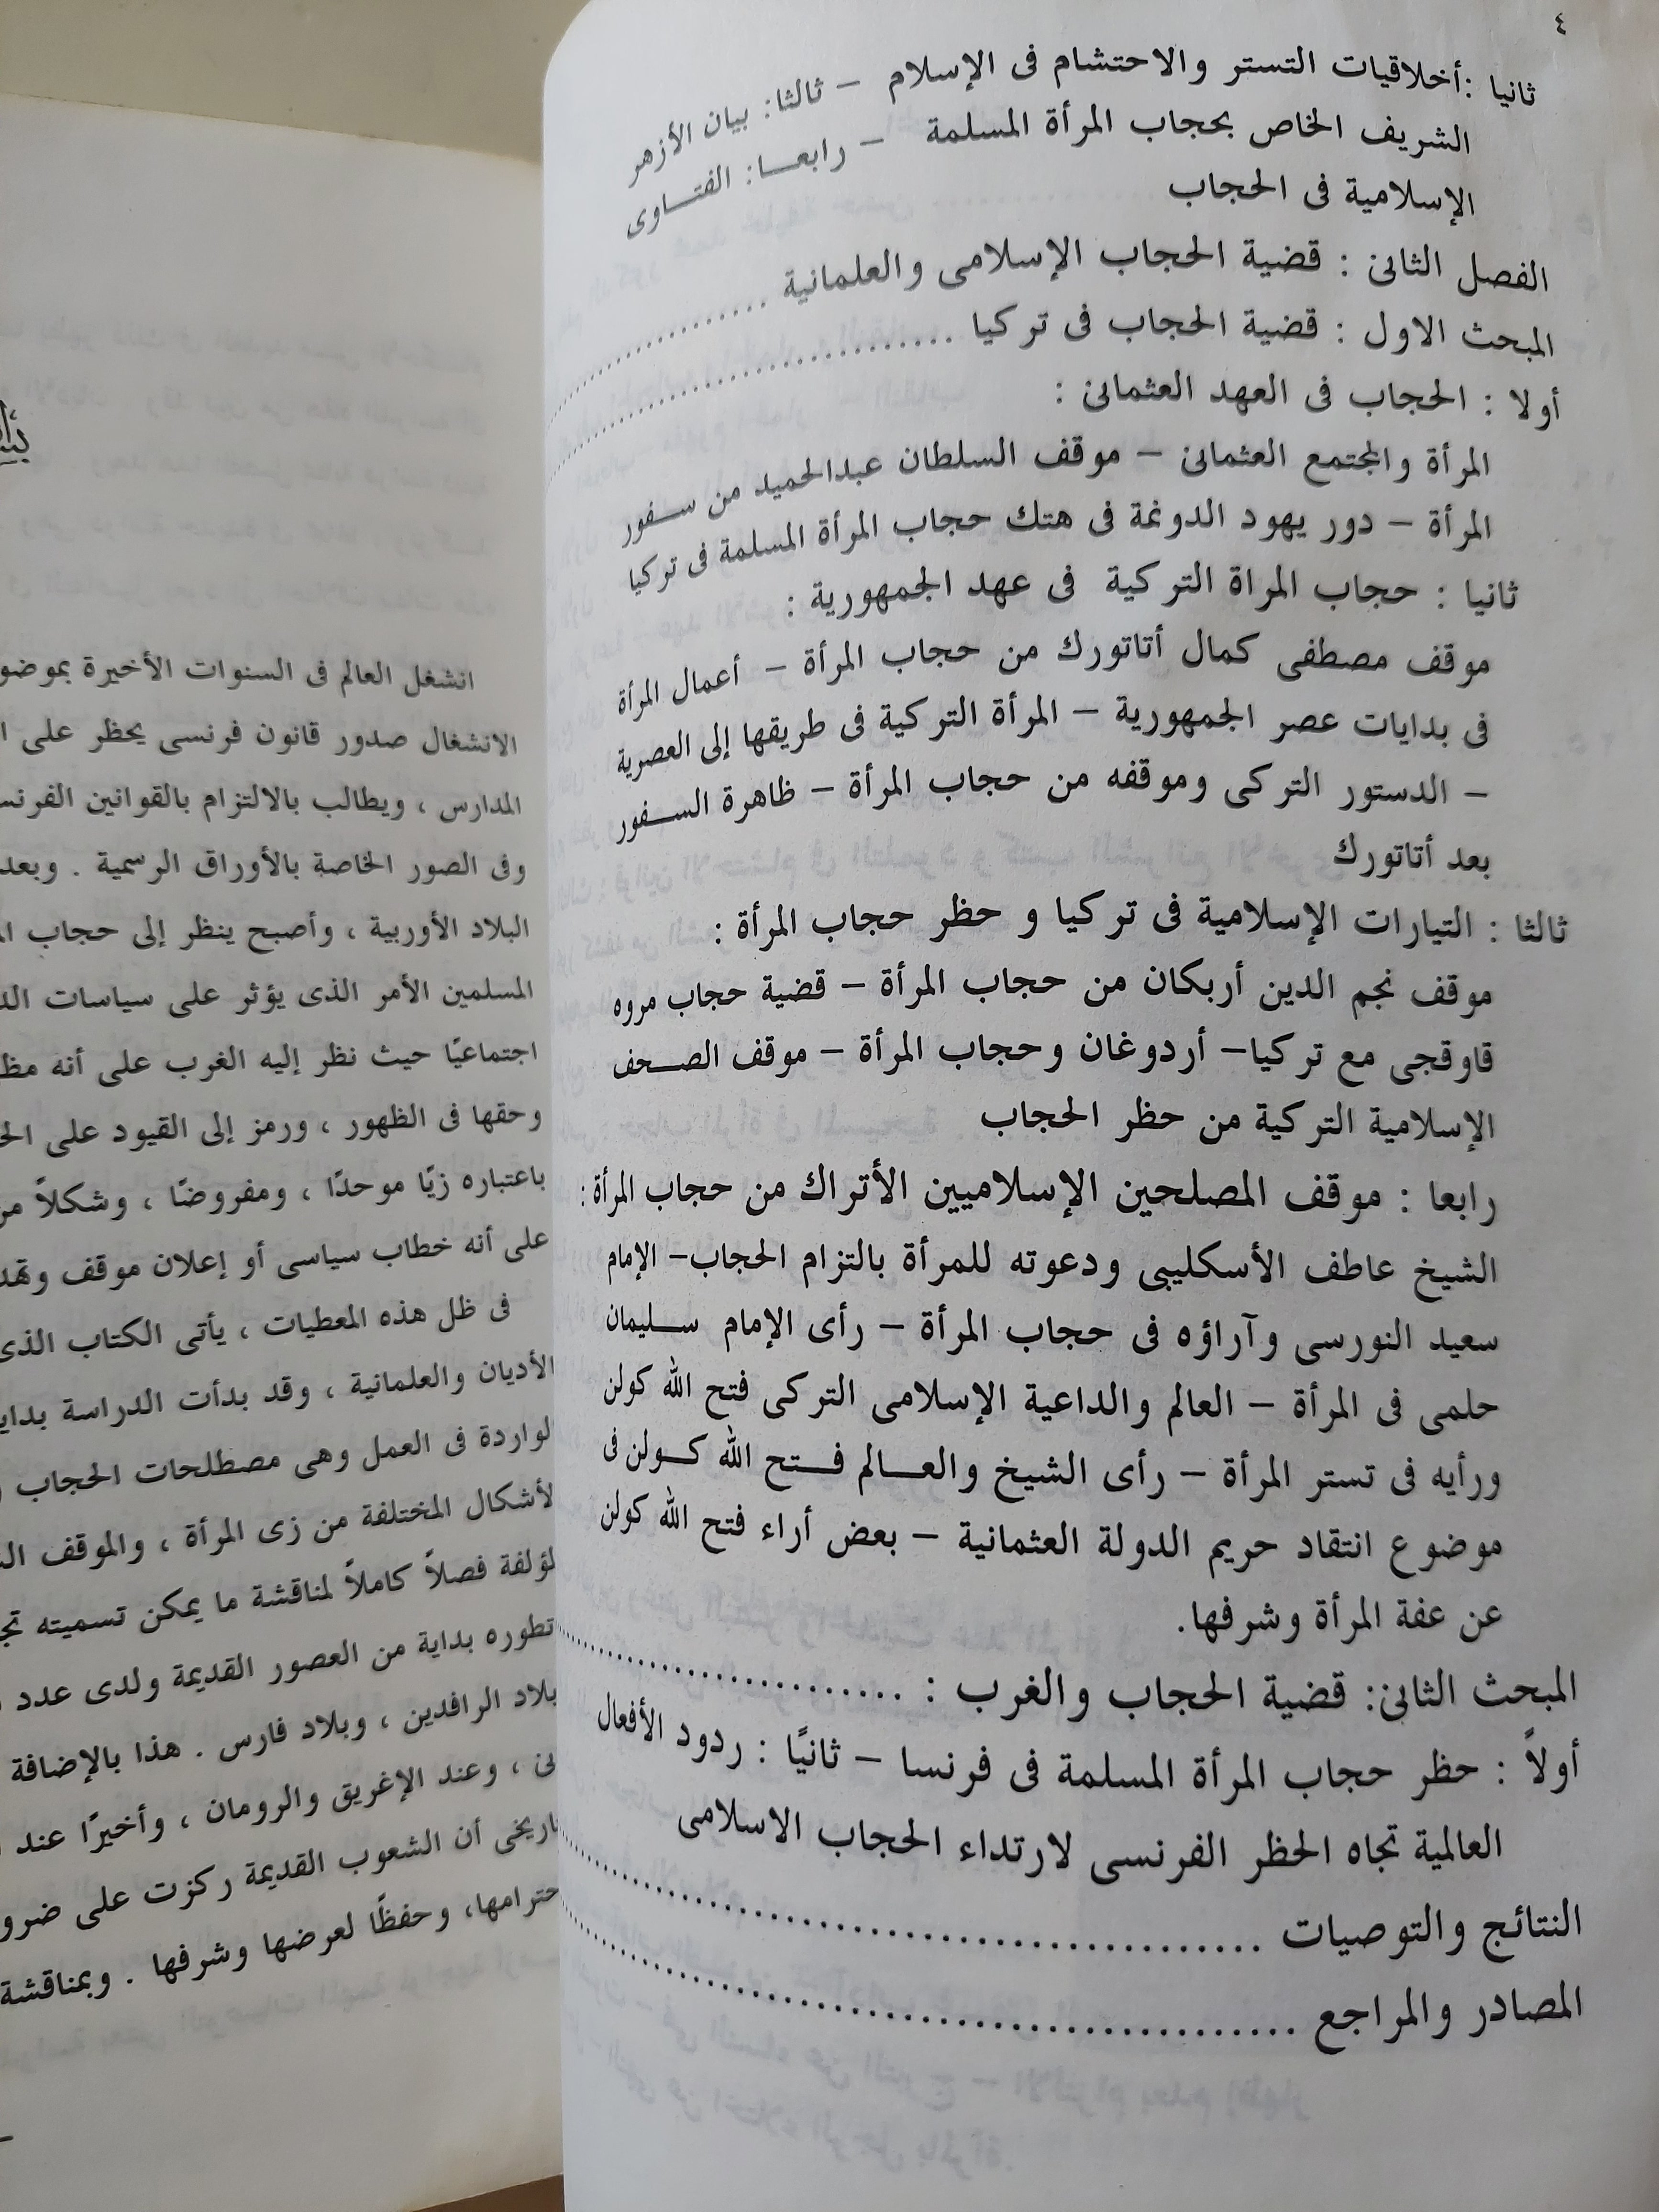 ٤
ثانيا :أخلاقيات التستر والاحتشام فى الإسلام – ثالثا: بيان الأزهر
الشريف الخاص بحجاب المرأة المسلمة – رابعـــا: الفتـــاوى
الإسلامية فى الحجاب
الفصل الثانى : قضية الحجاب الإسلامى والعلمانية ....................
المبحث الاول : قضية الحجاب فى تركيا ..............................
أولا : الحجاب فى العهد العثمانى :
المرأة والمجتمع العثمانى – موقف السلطان عبدالحميد من سـفور
المرأة – دور يهود الدونمة فى هتك حجاب المرأة المسلمة فى تركيا
ثانيا : حجاب المراة التركية فى عهد الجمهورية :
موقف مصطفى كمال أتاتورك من حجاب المرأة – أعمال المرأة
فى بدايات عصر الجمهورية – المرأة التركية فى طريقها إلى العصرية
– الدستور التركى وموقفه من حجاب المرأة – ظاهرة الســفور
بعد أتاتورك
ثالثا : التيارات الإسلامية فى تركيا و حظر حجاب المرأة :
موقف نجم الدين أربكان من حجاب المرأة – قضية حجاب مروه
قاوقجى مع تركيا– أردوغان وحجاب المرأة – موقف الصـحف
الإسلامية التركية من حظر الحجاب
رابعا : موقف المصلحين الإسلاميين الأتراك من حجاب المرأة :
الشيخ عاطف الأسكليبى ودعوته للمرأة بالتزام الحجاب– الإمام
سعيد النورسى وآراؤه فى حجاب المرأة – رأى الإمام سـليمان
حلمى فى المرأة – العالم والداعية الإسلامى التركى فتح الله كولن
ورأيه فى تستر المرأة – رأى الشيخ والعــالم فــتح الله كـولن فى
موضوع انتقاد حريم الدولة العثمانية – بعض أراء فتح الله كولن
عن عفة المرأة وشرفها.
المبحث الثانى: قضية الحجاب والغرب : ..............................
أولاً : حظر حجاب المرأة المسلمة فى فرنسا – ثانيًا : ردود الأفعال
العالمية تجاه الحظر الفرنسى لارتداء الحجاب الاسلامى
النتائج والتوصيات ..................................................
المصادر والمراجع ..................................................
انشغل العالم فى السنوات الأخيرة
الانشغال صدور قانون فرنسى يحظر على
المدارس ، ويطالب بالالتزام بالقوانين
وفى الصور الخاصة بالأوراق الرسمية . وبعد
البلاد الأوربية ، وأصبح ينظر إلى حجاب
المسلمين الأمر الذى يؤثر على سياسات
اجتماعيًا حيث نظر إليه الغرب على أنه
وحقها فى الظهور ، ورمز إلى القيود على
باعتباره زيًا موحدًا ، ومفروضًا ، وشكلاً
على أنه خطاب سياسى أو إعلان موقف
فى ظل هذه المعطيات ، يأتى الكتاب
الأديان والعلمانية ، وقد بدأت الدراسة
لواردة فى العمل وهى مصطلحات الحجاب
لأشكال المختلفة من زى المرأة ، والموقف
لؤلفة فصلاً كاملاً لمناقشة ما يمكن تسميته
تطوره بداية من العصور القديمة ولدى عدد
بلاد الرافدين ، وبلاد فارس . هذا بالإضافة
، وعند الإغريق والرومان ، وأخيرًا عند
اريخى أن الشعوب القديمة ركزت على
حترامها، وحفظًا لعرضها وشرفها . وبمناقشة